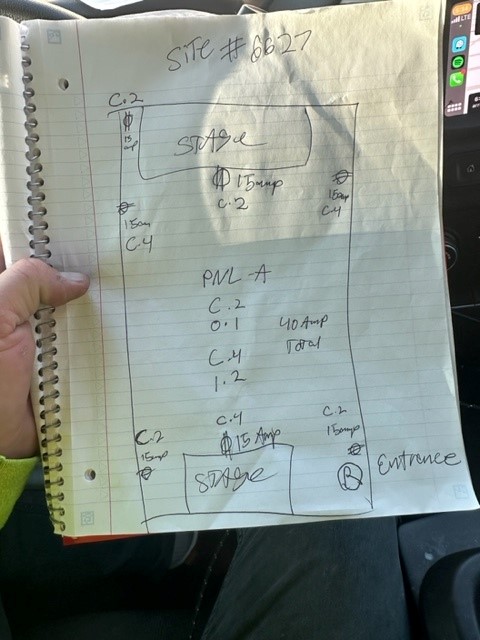 Site # 6627
C.2
15 amp
Stage
15 amp
C.2
15 amp
C.4
15 am
C.4
PNL-A
C.2
0.1
40 Amp
Total
C.4
1.2
C.4
15 Amp
C.2
15 amp
C.2
15 amp
Stage
R
Entrance
LTE